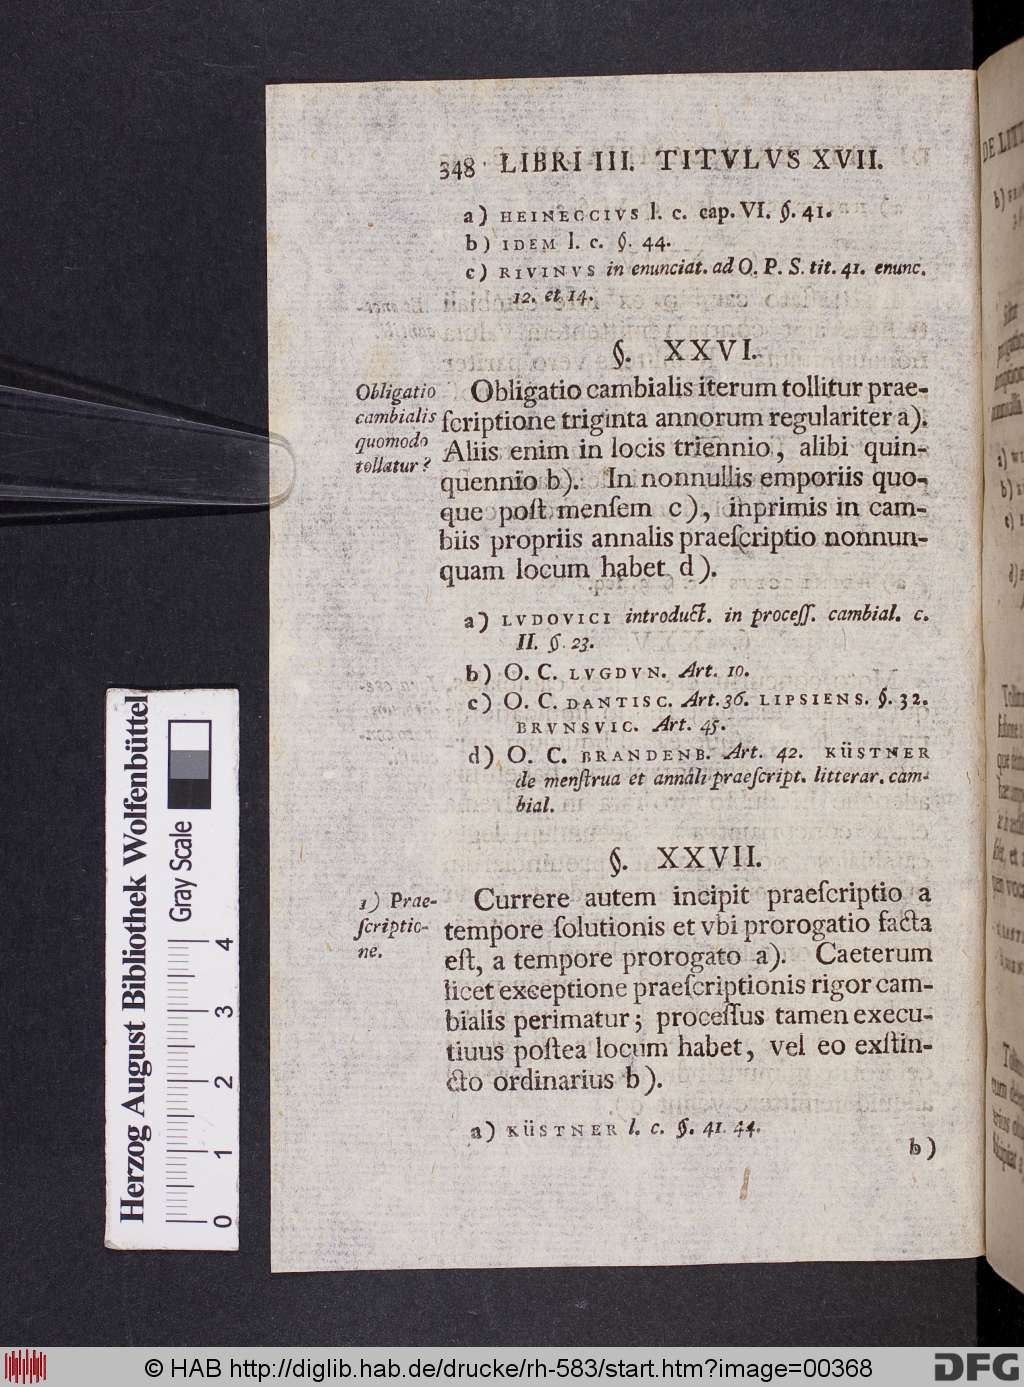 348 LIBRI III. TITVLVS XVII.
a) HEINECCIVS l. c. cap. VI. §. 41.
b) IDEM l. c. §. 44.
c) RIVINVS in enunciat. ad O. P. S. tit. 41. enunc.
12. et 14.
§. XXVI.
Obligatio
cambialis
quomodo
tollatur?
Obligatio cambialis iterum tollitur prae-
ſcriptione triginta annorum regulariter a).
Aliis enim in locis triennio, alibi quin-
quennio b). In nonnullis emporiis quo-
que poſt menſem c), inprimis in cam-
biis propriis annalis praeſcriptio nonnun-
quam locum habet d).
a) LVDOVICI introduct. in proceſſ. cambial. c.
II. §. 23.
b) O. C. LVGDVN. Art. 10.
c) O. C. DANTISC. Art. 36. LIPSIENS. §. 32.
BRVNSVIC. Art. 45.
d) O. C. BRANDENB. Art. 42. KÜSTNER
de menſtrua et annali praeſcript. litterar. cam-
bial.
§. XXVII.
1) Prae-
ſcriptio-
ne.
Currere autem incipit praeſcriptio a
tempore ſolutionis et vbi prorogatio facta
eſt, a tempore prorogato a). Caeterum
licet exceptione praeſcriptionis rigor cam-
bialis perimatur; proceſſus tamen execu-
tiuus poſtea locum habet, vel eo exſtin-
cto ordinarius b).
a) KÜSTNER l. c. §. 41. 44.
b)
Herzog August Bibliothek Wolfenbüttel
Gray Scale
0 1 2 3 4
© HAB http://diglib.hab.de/drucke/rh-583/start.htm?image=00368
DFG